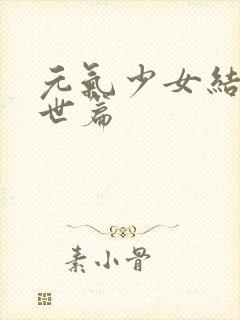 元氣少女結
世篇
素小骨